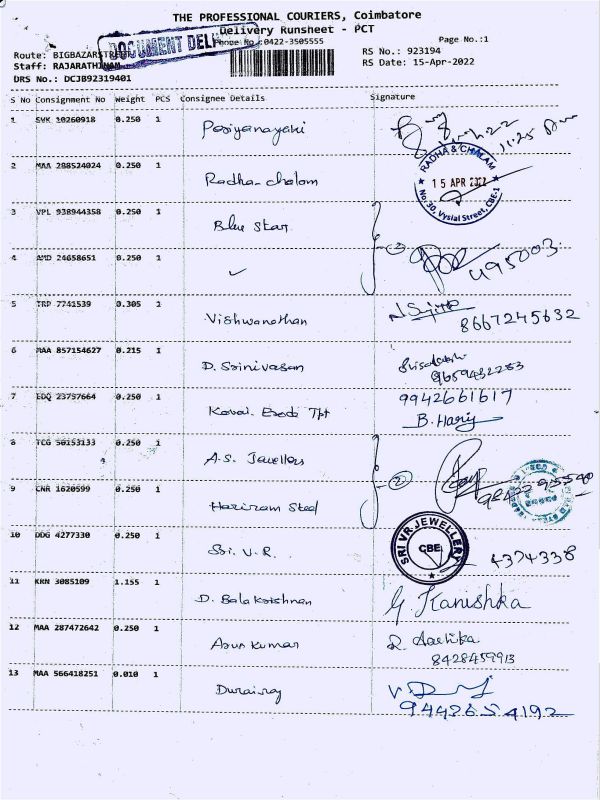 THE PROFESSIONAL COURIERS, Coimbatore
Delivery Runsheet - PCT
DOCUMENT
Phone No :0422-3505555
Page No.:1
Route: BIGBAZARSTREET
RS No.: 923194
Staff: RAJARATHINAM
RS Date: 15-Apr-2022
DRS No.: DCJB92319401
S No Consignment No Weight PCS Consignee Details Signature
1 SVK 10260918 0.250 1 Periyanayaki
11:25
2 MAA 288524024 0.250 1 Radha-chalam
RADHA & CHALAM
15 APR 2022
No:30, Vysial Street, CBE-1
3 VPL 938944358 0.250 1 Blue Star
4 AMD 24658651 0.250 1 ✓ 495003
5 TRP 7741539 0.305 1 Vishwanathan
8667245632
6 MAA 857154627 0.215 1 D. Srinivasan
9659432253
7 EDQ 23797664 0.250 1 Kovai Erode Tpt 9942661617
B. Hariy
8 TCG 50153133 0.250 1 A.S. Jewellers
9 CNR 1620599 0.250 1 Hariram Steel
10 DDG 4277330 0.250 1 Sri. V.R. 4374338
SRI VR JEWELLERY
CBE
11 KRN 3085109 1.155 1 D. Balakrishnan G Kanushka
12 MAA 287472642 0.250 1 Arun Kumar R. Aartika
8428459913
13 MAA 566418251 0.010 1 Durairaj
9442654192